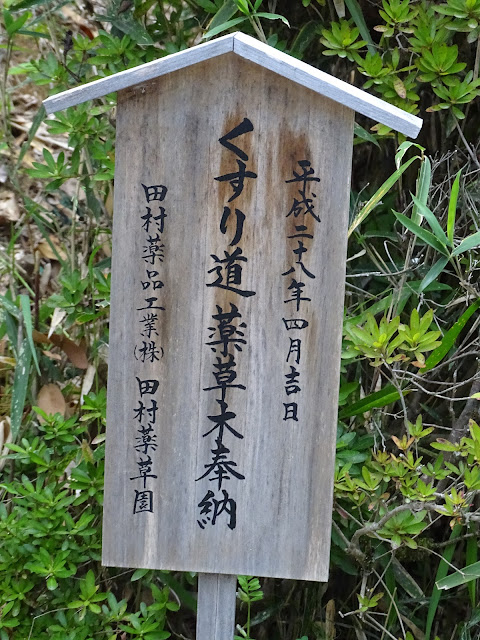 平成二十八年四月吉日
くすり道 薬草木奉納
田村薬品工業㈱ 田村薬草園